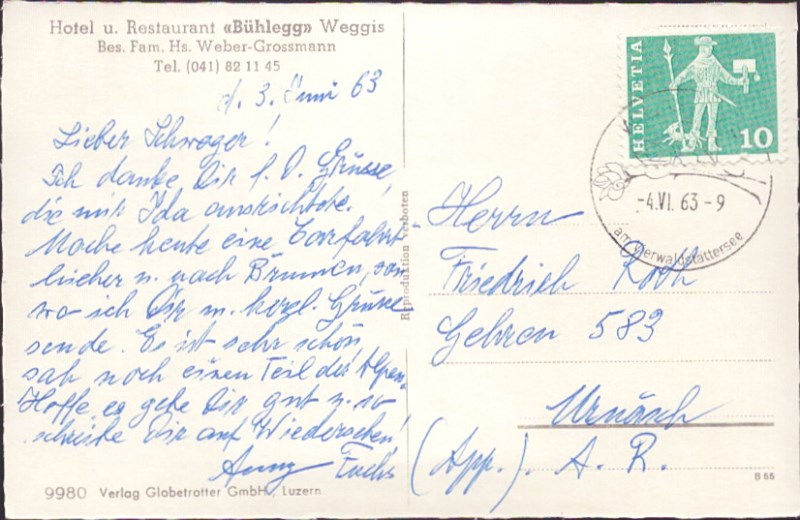 Hotel u. Restaurant «Bühlegg» Weggis
Bes. Fam. Hs. Weber-Grossmann
Tel. (041) 82 11 45
d. 3. Juni 63
Lieber Schwager!
Ich danke Dir f. D. Grüsse,
die mir Ida ausrichtete.
Mache heute eine Carfahrt
hieher u. nach Brunnen, von
wo ich Dir m. herzl. Grüsse
sende. Es ist sehr schön,
sah noch einen Teil der Alpen.
Hoffe, es gehe Dir gut u. so
schreibe Dir auf Wiedersehen!
Anny Fuchs
9980 Verlag Globetrotter GmbH, Luzern
Reproduktion verboten
HELVETIA
10
-4.VI. 63-9
am Vierwaldstättersee
Herrn
Friedrich Roth
Gehren 583
Urnäsch
(App.) A. R.
B 55